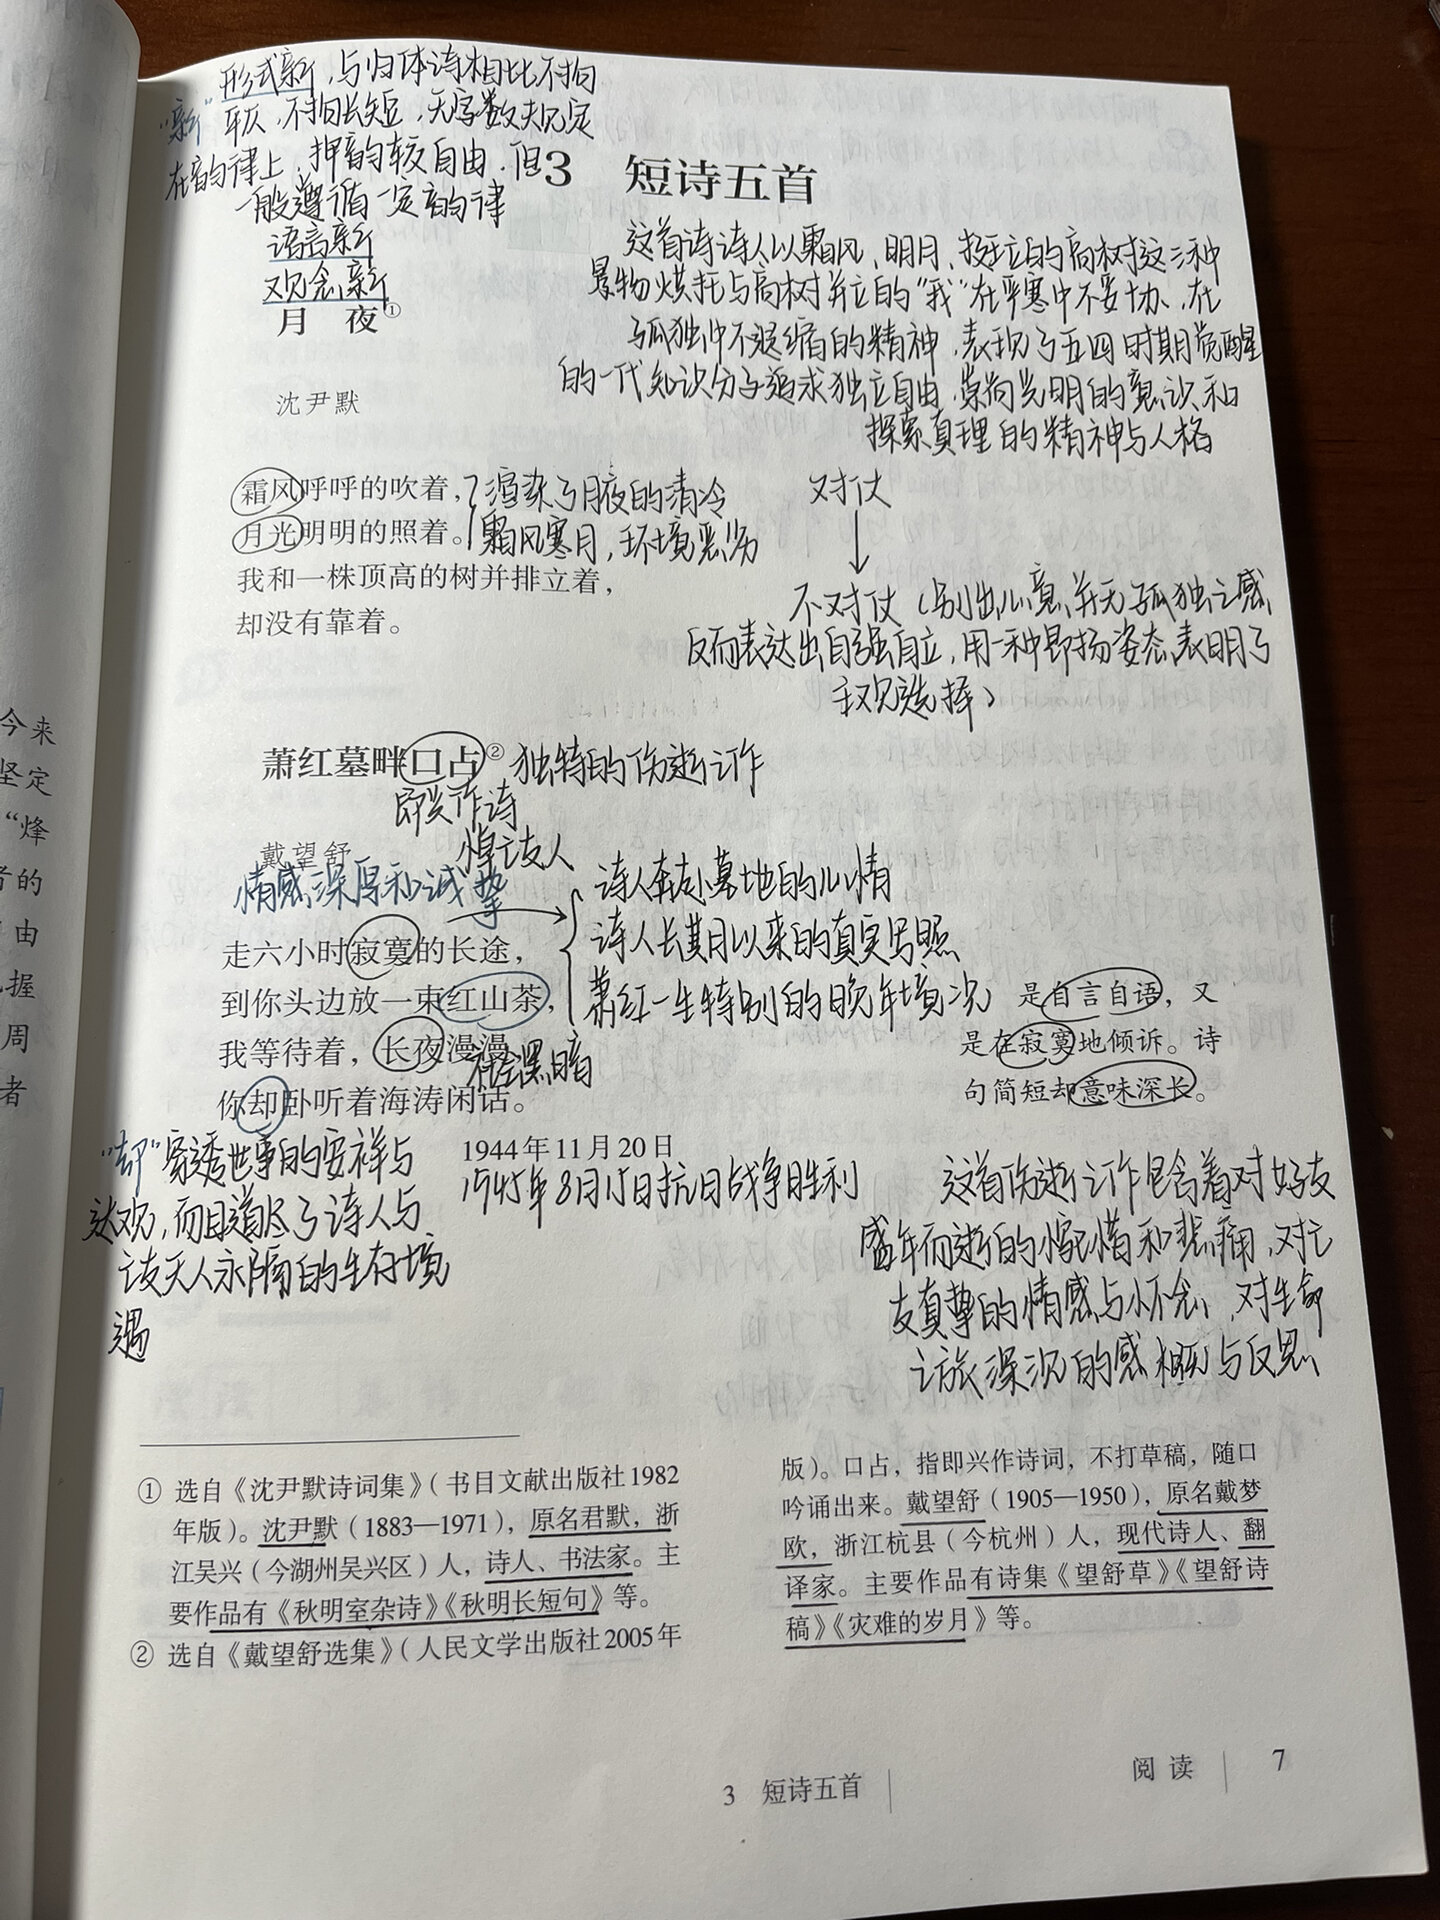 形式新，与旧体诗相比不拘
“新”平仄，不拘长短，无字数规定
在韵律上，押韵较自由，但
一般遵循一定韵律
语言新
观念新
3 短诗五首
这首诗诗人以霜风、明月、挺拔的高树这三种
景物烘托与高树并立的“我”在严寒中不妥协、在
孤独中不退缩的精神，表现了五四时期觉醒
的一代知识分子追求独立自由、崇尚光明的意识和
探索真理的精神与人格
月夜①
沈尹默
霜风呼呼的吹着，
月光明明的照着。
我和一株顶高的树并排立着，
却没有靠着。
渲染了月夜的清冷
霜风寒月，环境恶劣
对仗
不对仗（别出心意，并无孤独之感，
反而表达出自强自立，用一种昂扬姿态表明了
主观选择）
萧红墓畔口占②
独特的伤逝之作
即兴作诗
悼亡友人
戴望舒
情感深厚和诚挚
走六小时寂寞的长途，
到你头边放一束红山茶，
我等待着，长夜漫漫，
你却卧听着海涛闲话。
诗人奔赴墓地的心情
诗人长期以来的真实写照
萧红一生特别的晚年境况
社会黑暗
是自言自语，又
是在寂寞地倾诉。诗
句简短却意味深长。
1944年11月20日
1945年8月15日抗日战争胜利
“却”穿透世事的安祥与
达观，而且道尽了诗人与
亡友天人永隔的生存境
遇
这首伤逝之作包含着对好友
盛年而逝的惋惜和悲痛，对亡
友真挚的情感与怀念，对生命
之旅深沉的感慨与反思
① 选自《沈尹默诗词集》（书目文献出版社1982
年版）。沈尹默（1883—1971），原名君默，浙
江吴兴（今湖州吴兴区）人，诗人、书法家。主
要作品有《秋明室杂诗》《秋明长短句》等。
② 选自《戴望舒选集》（人民文学出版社2005年
版）。口占，指即兴作诗词，不打草稿，随口
吟诵出来。戴望舒（1905—1950），原名戴梦
欧，浙江杭县（今杭州）人，现代诗人、翻
译家。主要作品有诗集《望舒草》《望舒诗
稿》《灾难的岁月》等。
3 短诗五首
阅读 7
今来
坚定
“烽
者的
由
握
周
者